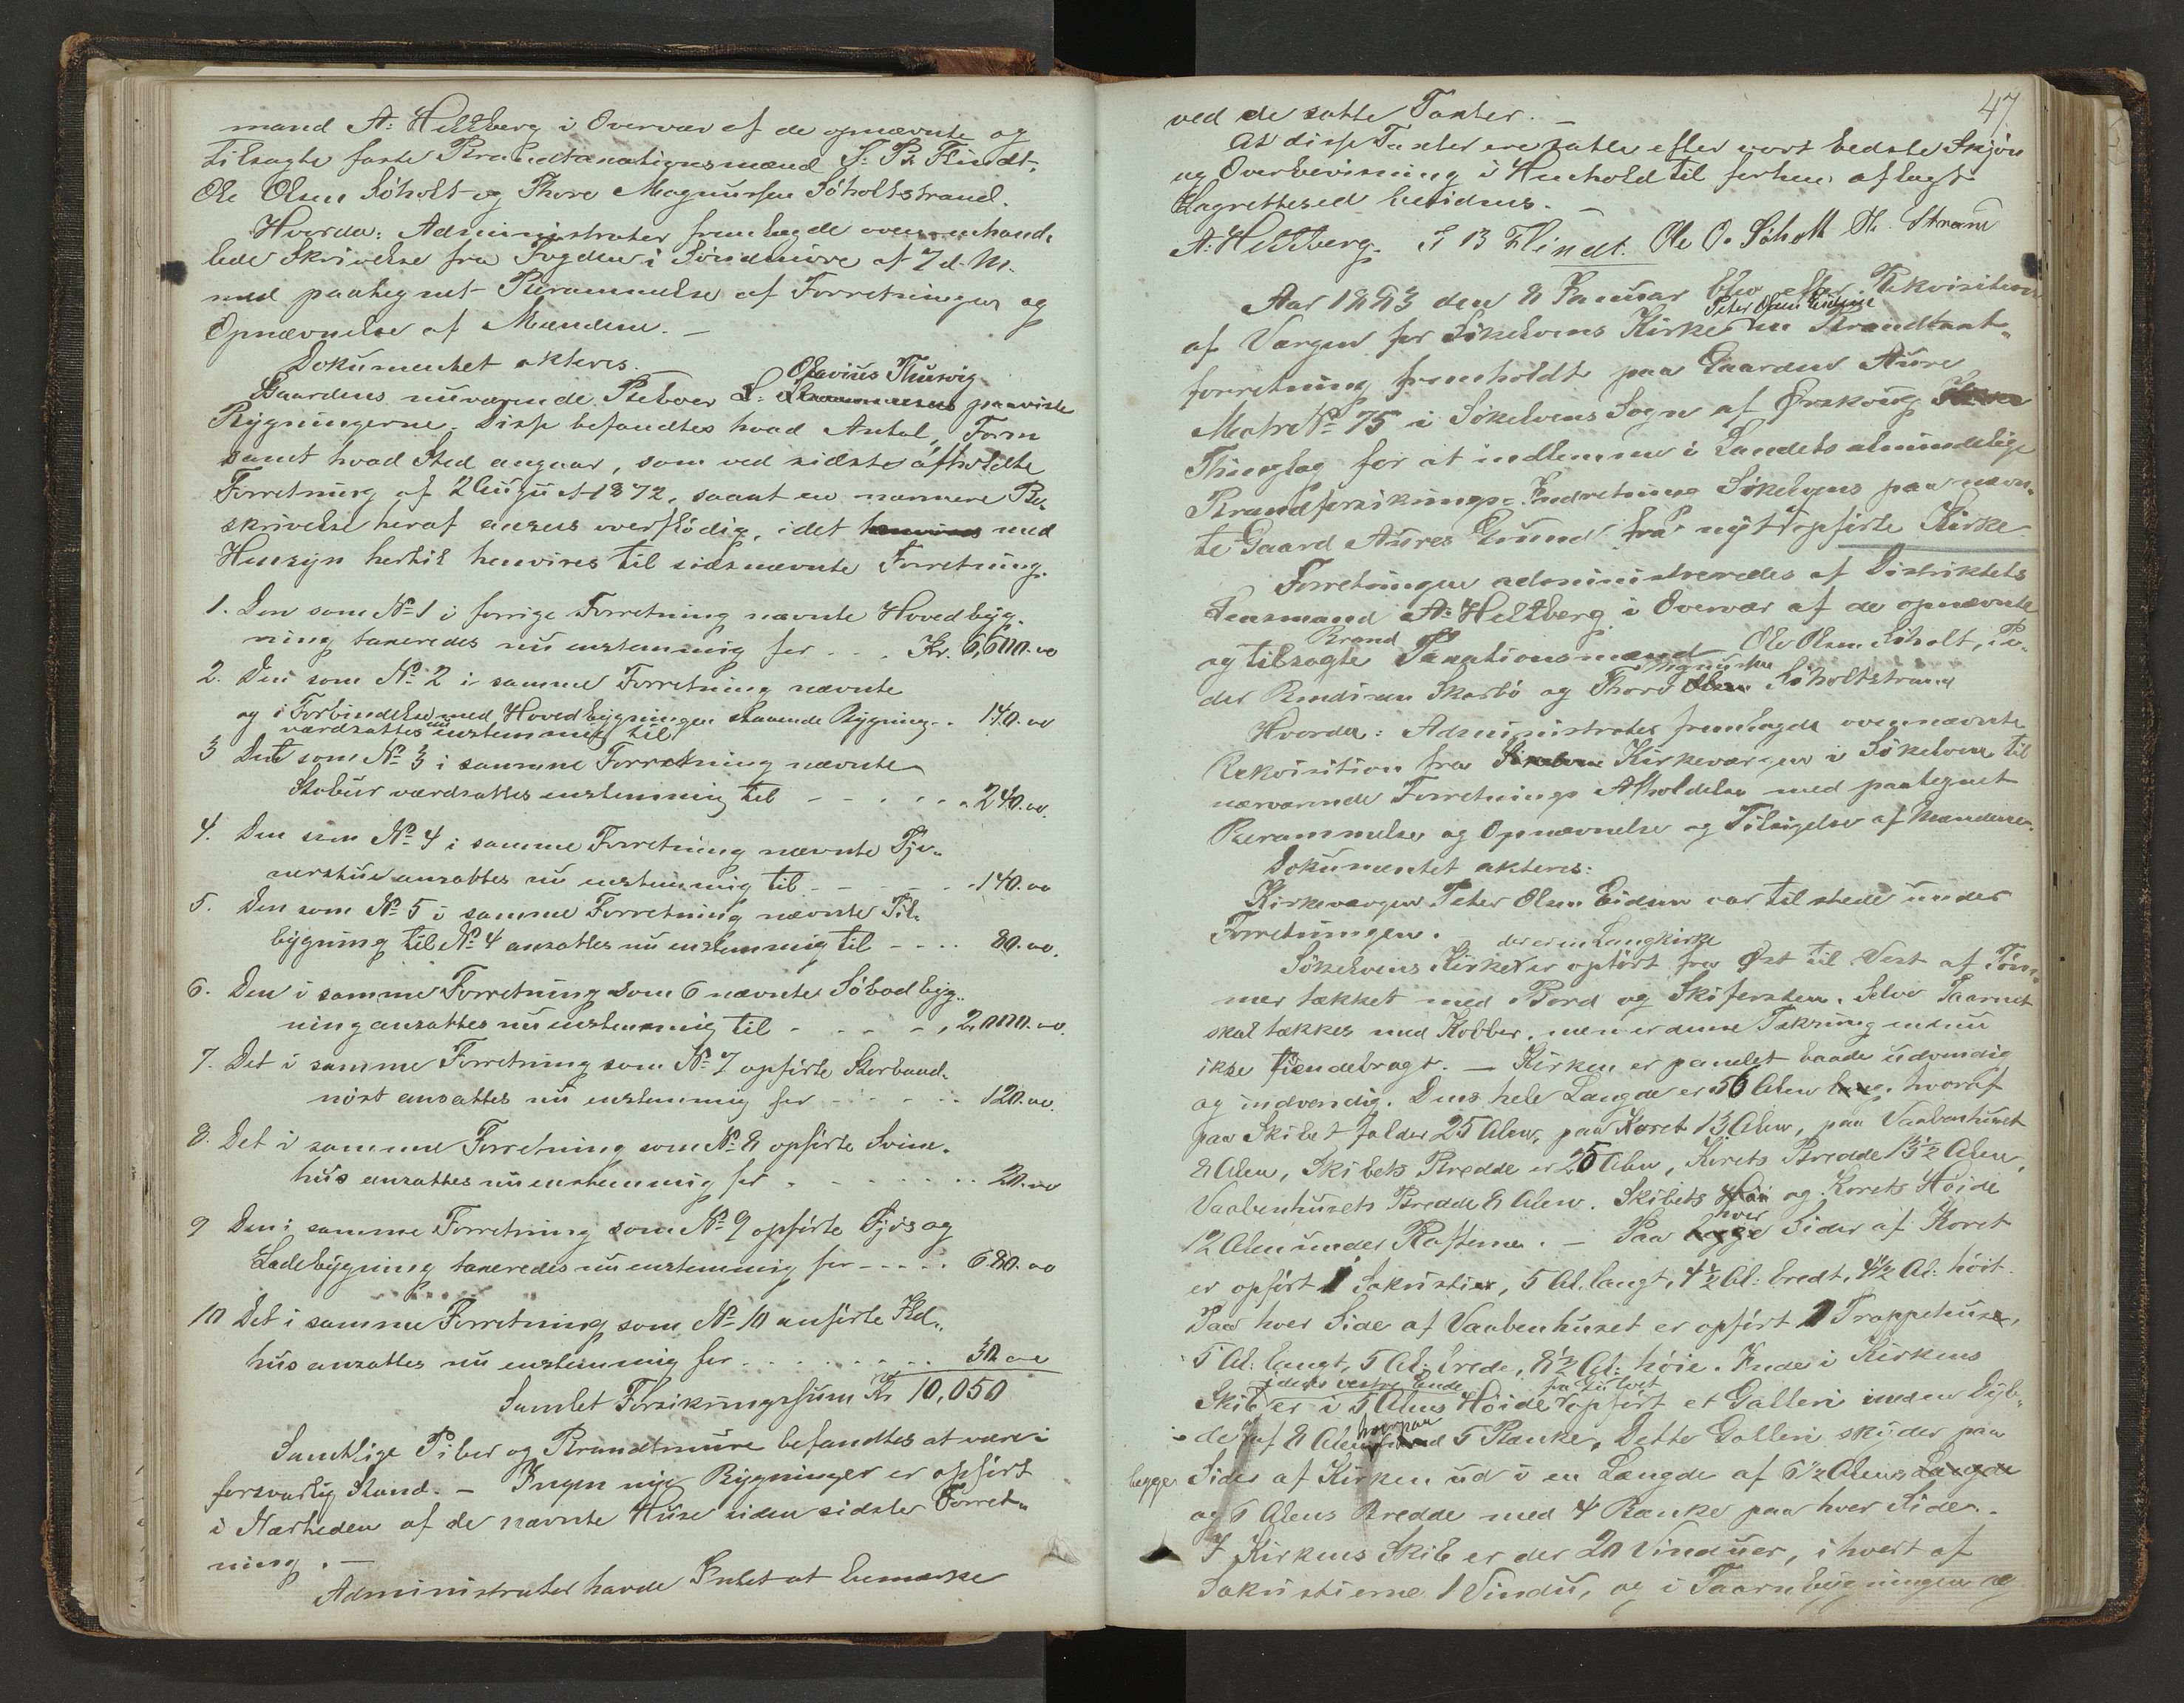 mand A: Heltberg i Overvær af de opnævnte og
tilsagte faste Brandtaxationsmænd S: Br. Flindt,
Ole Olsen Søholt og Thore Magnussen Søholtstrand.
Hvorda: Administrator fremlagde ovennehand-
lede Skrivelse fra Fogden i Söndmöre af 7 d. M.
med paategnet Berammelse af Forretningen og
Opnævnelse af Mændene. —
Dokumentet akteres.
Olavius Thusvig
Gaardens nuværende Beboer L: paaviste
Bygningerne. Disse befandtes hvad Antal, Form
samt hvad Sted angaar, som ved sidste afholdte
Forretning af 2 August 1872, saaat en nærmere Be-
skrivelse heraf ansees overflödig, idet henvises med
Hensyn hertil henvises til sidsnævnte Forretning.
1. Den som No 1 i forrige Forretning nævnte Hovedbyg-
ning taxeredes nu enstemmig for . . . Kr. 6,600.00
2. Den som No 2 i samme Forretning nævnte
og i Forbindelse med Hovedbygningen staaende Bygning . . 140.00
værdsattes nu enstemmig til
3 Det som No 3 i samme Forretning nævnte
Stabur værdsattes enstemmig til - - . . . . 240.00.
4. Den som No 4 i samme Forretning nævnte Tje-
nerstue ansattes nu enstemmig til - - - - 140.00
5. Den som No 5 i samme Forretning nævnte Til-
bygning til No 4 ansattes nu enstemmig til - - . . 80.00.
6. Den i samme Forretning som 6 nævnte Söbodbyg-
ning ansattes nu enstemmig til - . . - - , 2,000.00.
7. Det i samme Forretning som No 7 opførte Storbaad-
nöst ansattes nu enstemmig for - - - - . . 120.00.
8. Det i samme Forretning som No 8 opførte Svine-
hus ansattes nu enstemmig for . - - . . . . 20.00
9 Den i samme Forretning som No 9 opførte Fjös og
Ladebygning taxeredes nu enstemmig for - - - . . 680.00
10 Det i samme Forretning som No 10 anførte Ild-
hus ansattes nu enstemmig for . . . . . . . . . 50 00
Samlet Forsikringssum Kr 10,050
Samtlige Piber og Brandtmure befandtes at være i
forsvarlig Stand. — Ingen nye Bygninger er opført
i Nærheden af de nævnte Huse siden sidste Forret-
ning. —
Administrator havde Intet at bemærke
47
ved de satte Taxter. —
At disse Taxter ere satte efter vort bedste Skjön
og Overbevisning i Henhold til forhen aflagt
Lagrettesed bevidnes. —
A: Heltberg. S B Flindt. Ole O. Søholt M. Strand
Aar 1883 den 8 Januar blev efter Rekvisition
Peter Olsen Eidsem
af Værgen for Sökelvens Kirke en Brandtaxt-
forretning fremholdt paa Gaarden Aure
Matr No 75 i Sökelvens Sogn af Ørskoug
Thinglag for at indlemme i Landets almindelige
Brandforsikrings-Indretning Sökelvens paa nævn-
te Gaard Aures Grund fra nyt opførte Kirke
Forretningen administreredes af Distriktets
Lensmand A: Heltberg i Overvær af de opnævnte
og tilsagte Brand Taxationsmænd Ole Olsen Søholt, Pe-
der Knudsen Skarbö og Thore Magnussen Olsen Söholtstrand
Hvorda: Administrator fremlagde ovennævnte
Rekvisition fra Kirkeværgen i Sökelven til
nærværende Forretnings Afholdelse med paategnet
Berammelse og Opnævnelse og Tilsigelse af Mændene.
Dokumentet akteres:
Kirkeværgen Peter Olsen Eidsem var tilstede under
Forretningen.
der er en Langkirke
Sökelvens Kirke er opført fra Øst til Vest af Töm-
mer tækket med Bord og Skifersten. Selve Taarnet
skal tækkes med Kobber, men er denne Tækning endnu
ikke tilendebragt. — Kirken er panelet baade udvendig
og indvendig. Dens hele Længde er 56 Alen lang, hvoraf
paa Skibet falder 25 Alen, paa Koret 13 Alen, paa Vaabenhuset
8 Alen, Skibets Bredde er 25 Alen, Korets Bredde 13½ Alen,
Vaabenhusets Bredde 8 Alen. Skibets og Korets Höide
12 Alen under Rafterne. — Paa hver begge Sider af Koret
er opført 1 Sakristier, 5 Al. langt, 4½ Al: bredt, 4½ Al: höit.
Paa hver Side af Vaabenhuset er opført 1 Trappehuse,
5 Al: langt, 5 Al: brede, 8½ Al: höie. Inde i Kirkens
i dens vestre Ende fra Gulvet
Skib er i 5 Alens Höide opført et Galleri med en Dyb-
de af 8 Alen hvorpaa 5 Bænke, Dette Galleri skyder paa
begge Sider af Kirken ud i en Længde af 6½ Alens Længde
og 6 Alens Bredde med 4 Bænke paa hver Side.
I Kirkens Skib er der 20 Vinduer, i hvert af
Sakristierne 1 Vindu, og i Taarnbygningen og